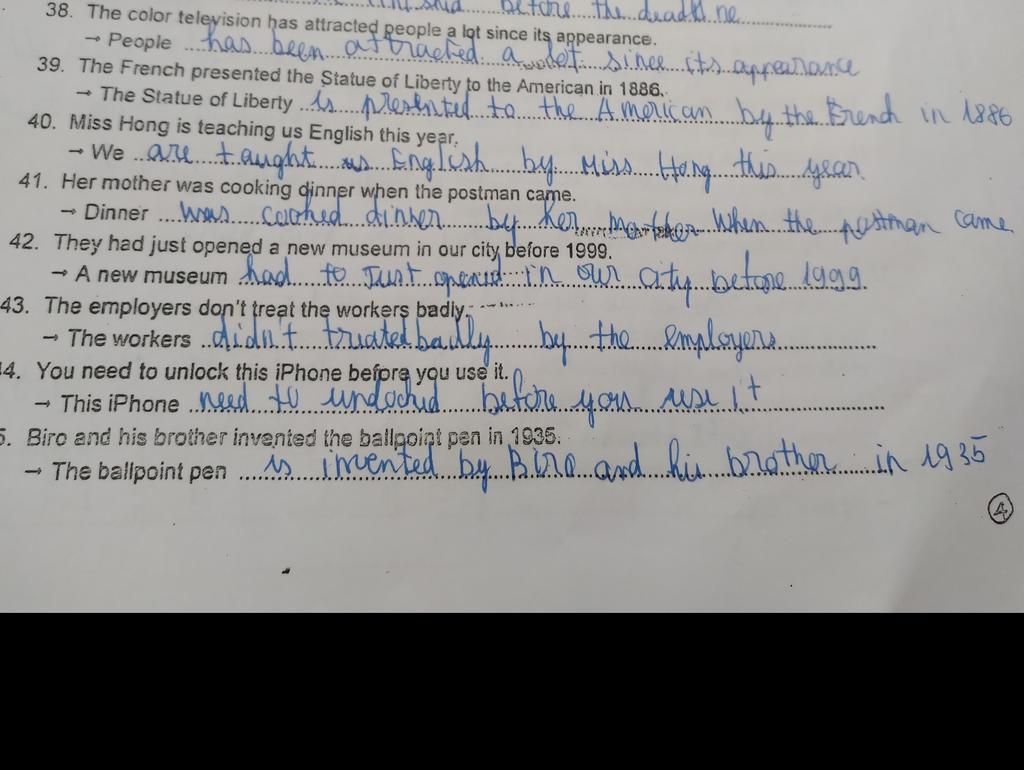 before the deadline
38. The color television has attracted people a lot since its appearance.
→ People has been attracted a lot since its appearance
39. The French presented the Statue of Liberty to the American in 1886.
→ The Statue of Liberty is presented to the American by the French in 1886
40. Miss Hong is teaching us English this year.
→ We are taught us English by Miss Hong this year.
41. Her mother was cooking dinner when the postman came.
→ Dinner was cooked dinner by her mother when the postman came.
42. They had just opened a new museum in our city before 1999.
→ A new museum had to Just opened in our city before 1999.
43. The employers don't treat the workers badly.
→ The workers didn't treated badly by the employers
4. You need to unlock this iPhone before you use it.
→ This iPhone need to unlocked before you use it
5. Biro and his brother invented the ballpoint pen in 1935.
→ The ballpoint pen is invented by Biro and his brother in 1935
4